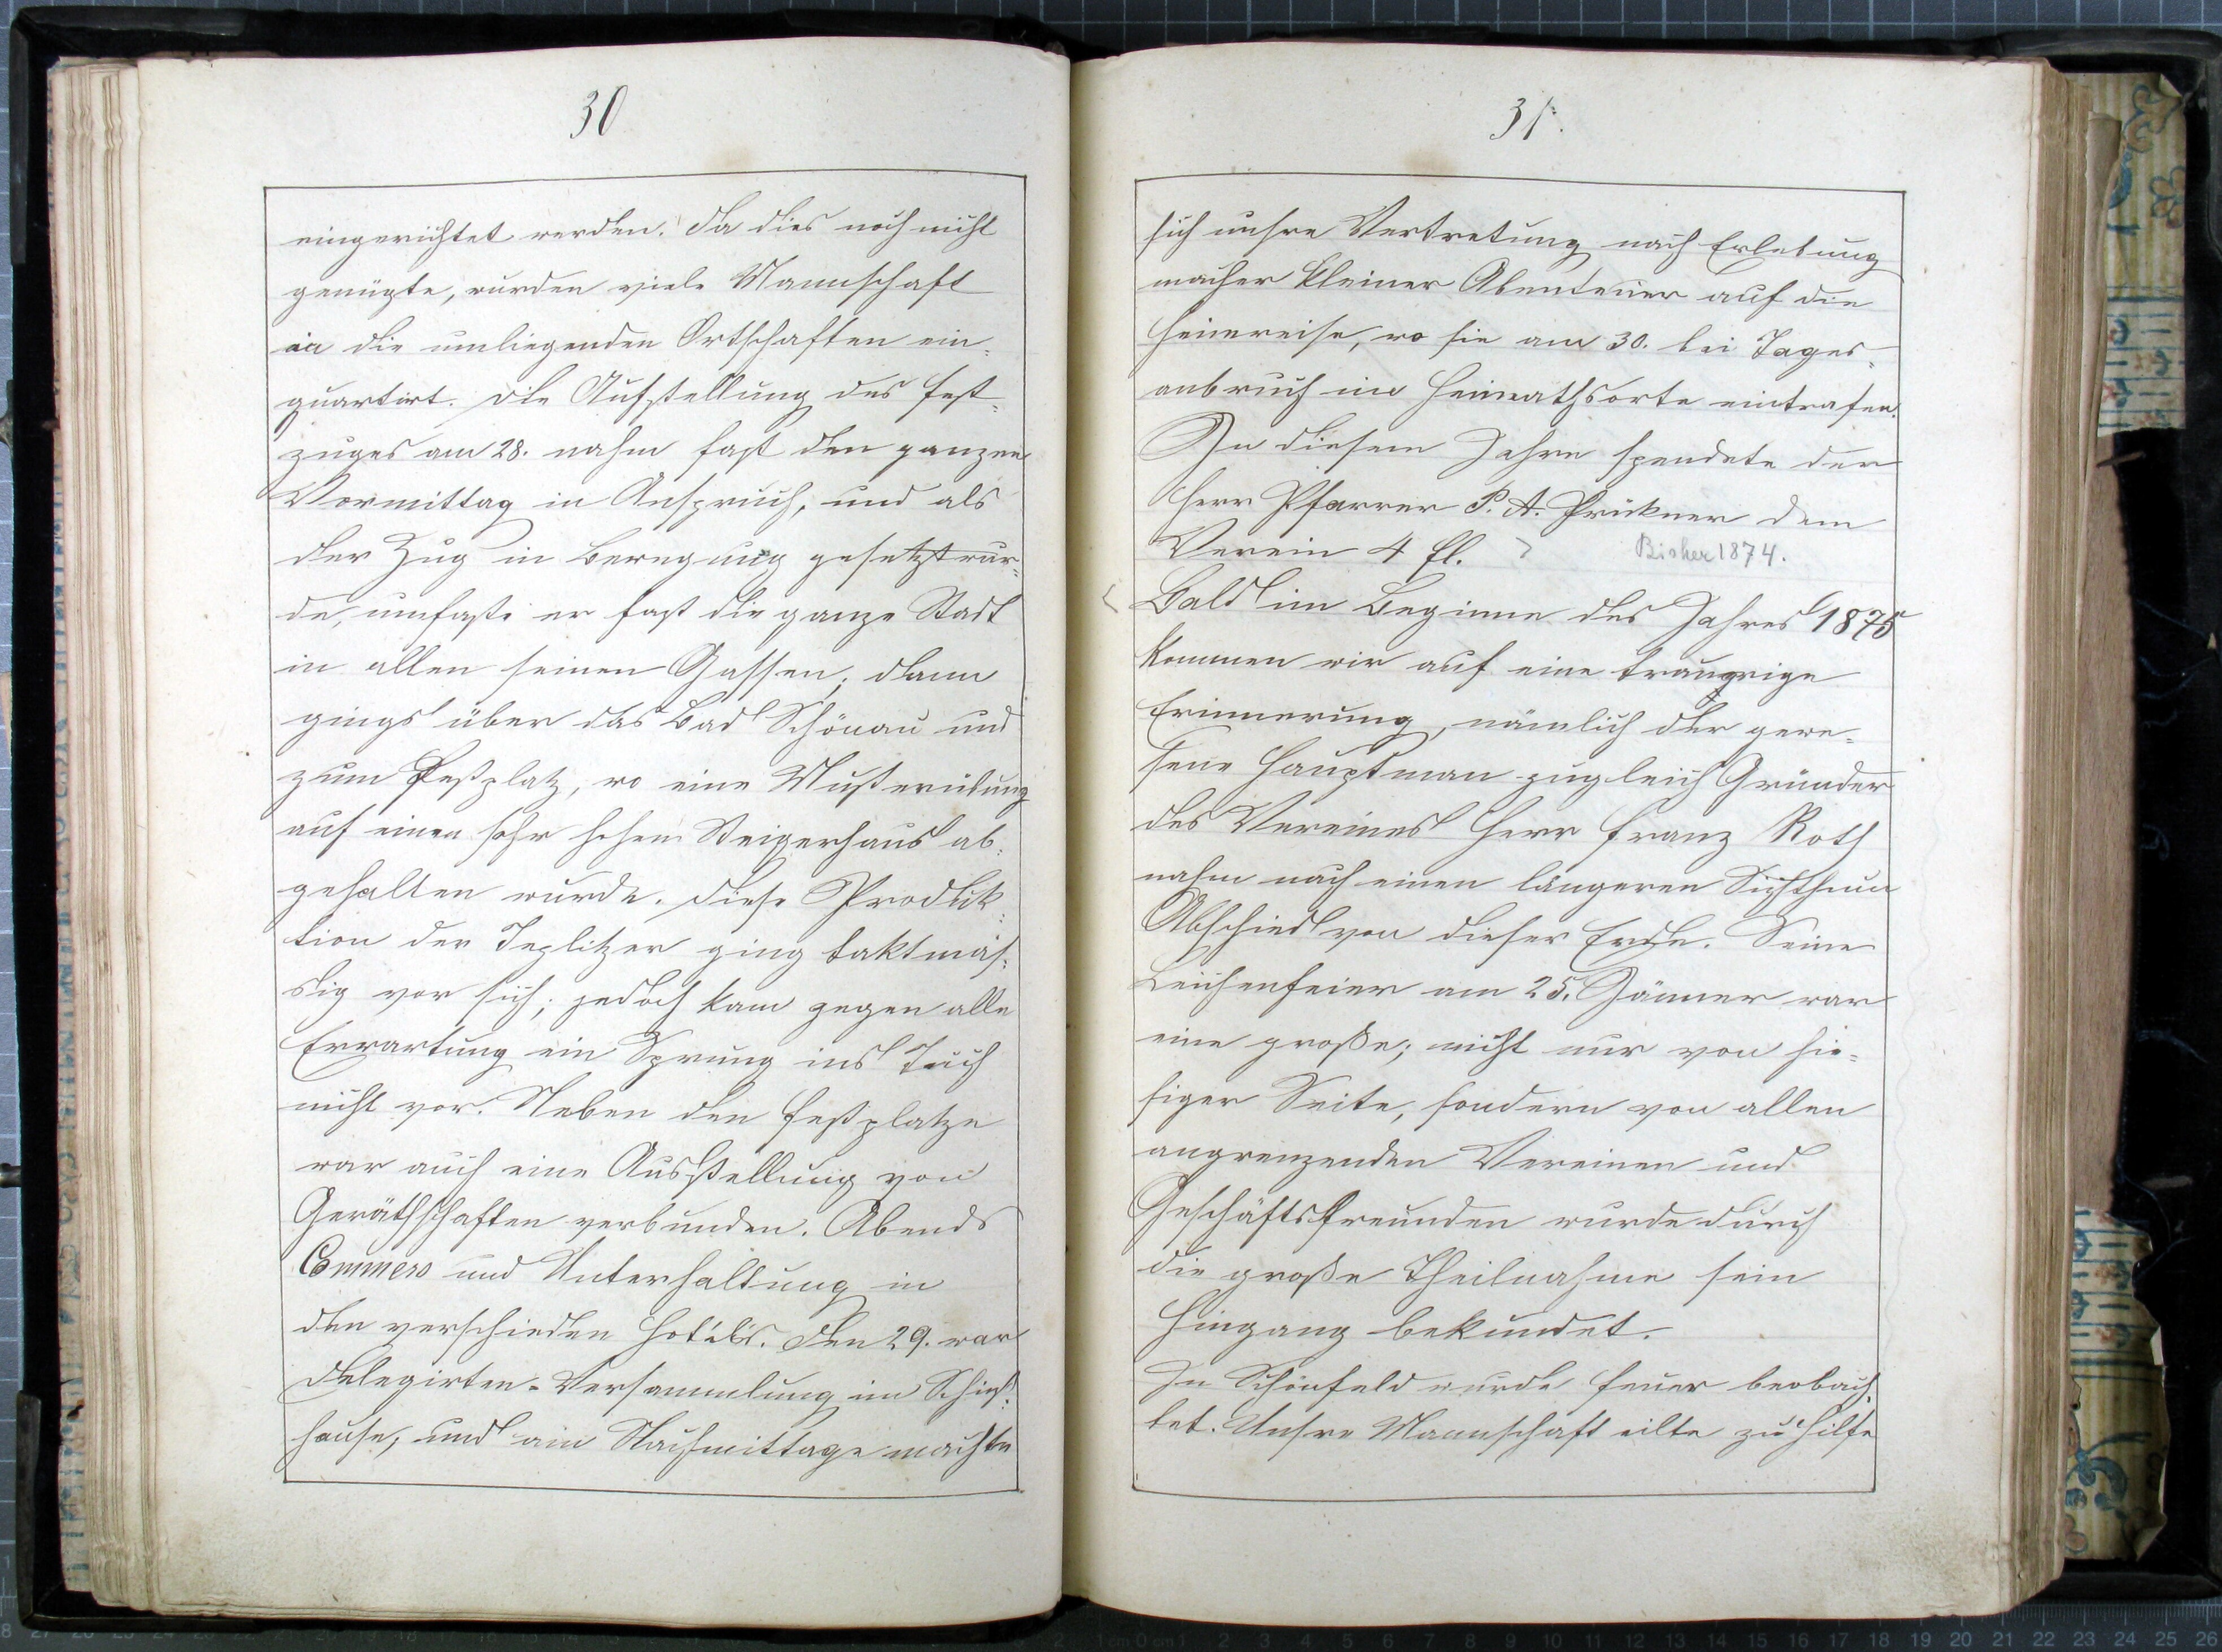 30
eingerichtet werden. Da dies noch nicht
genügte, wurden viele Mannschaft
in die umliegenden Ortschaften ein-
quartirt. Die Aufstellung des Fest-
zuges am 28. nahm fast den ganzen
Vormittag in Anspruch, und als
der Zug in Bewegung gesetzt wur-
de, umfaste er fast die ganze Stadt
in allen seinen Gassen; dann
gings über das Bad Schönau und
zum Festplatz, wo eine Musterübung
auf einen sehr hohen Steigerhaus ab-
gehalten wurde. Diese Produk-
tion der Teplitzer ging taktmäs-
sig vor sich; jedoch kam gegen alle
Erwartung ein Sprung ins Tuch
nicht vor. Neben den Festplatze
war auch eine Ausstellung von
Geräthschaften verbunden. Abends
Commers und Unterhaltung in
den verschieden Hotels. Den 29. war
Delegirten-Versammlung im Schieß-
hause, und am Nachmittage machte
31.
sich unsre Vertretung nach Erlebung
macher kleiner Abenteuer auf die
Heimreise, wo sie am 30. bei Tages-
anbruch im Heimathsorte eintrafen.
In diesem Jahre spendete der
Herr Pfarrer P. A. Prükner dem
Verein 4 fl.
Bisher 1874.
Bald im Beginne des Jahres 1875
kommen wir auf eine traurige
Erinnerung, nämlich der gewe-
sene Hauptman zugleich Gründer
des Vereines Herr Franz Roth
nahm nach einen längeren Sichthum
Abschied von dieser Erde. Seine
Leichenfeier am 25. Jänner war
eine große; nicht nur von hie-
siger Seite, sondern von allen
angrenzenden Vereinen und
Geschäftsfreunden wurde durch
die große Theilnahme sein
Hingang bekundet.
In Schönfeld wurde Feuer beobach-
tet. Unsre Mannschaft eilte zu Hilfe